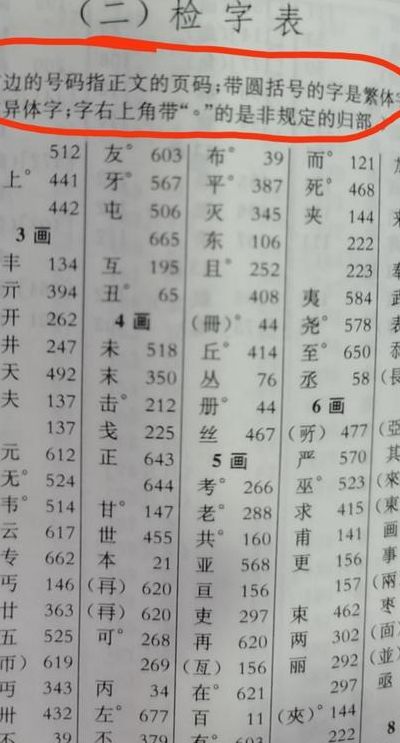 (二) 检字表
边的号码指正文的页码;带圆括号的字是繁体字
异体字;字右上角带“°”的是非规定的归部
512
上° 441
442
3画
丰 134
亓 394
开 262
井 247
天 492
夫 137
137
元 612
无° 524
韦° 514
云 617
专 662
丐 146
廿 363
五 525
帀) 619
丏 343
卅 432
不 39
友° 603
牙° 567
屯 506
665
互 195
丑° 65
4画
未 518
末 350
击° 212
戋 225
正 643
644
甘° 147
世 455
本 21
(再) 620
(再) 620
可° 268
269
丙 34
左° 677
丕 379
布° 39
平° 387
灭 345
东 106
且° 252
408
(冊)° 44
丘° 414
丛 76
册° 44
丝 467
5画
考° 266
老° 288
共° 160
亚 568
亘 156
吏 297
再 620
(亙) 156
在° 621
百 11
有° 603
而° 121
死° 468
夹 144
222
223
夷 584
尧° 578
至° 650
丞 58
6画
477
严 570
巫° 523
求 415
甫 141
更 156
157
束 462
两 302
丽 292
297
(夾)° 144
222
(長
(亞
其
(來
(東
画
事
(兩
枣
(面
(並
亟
8